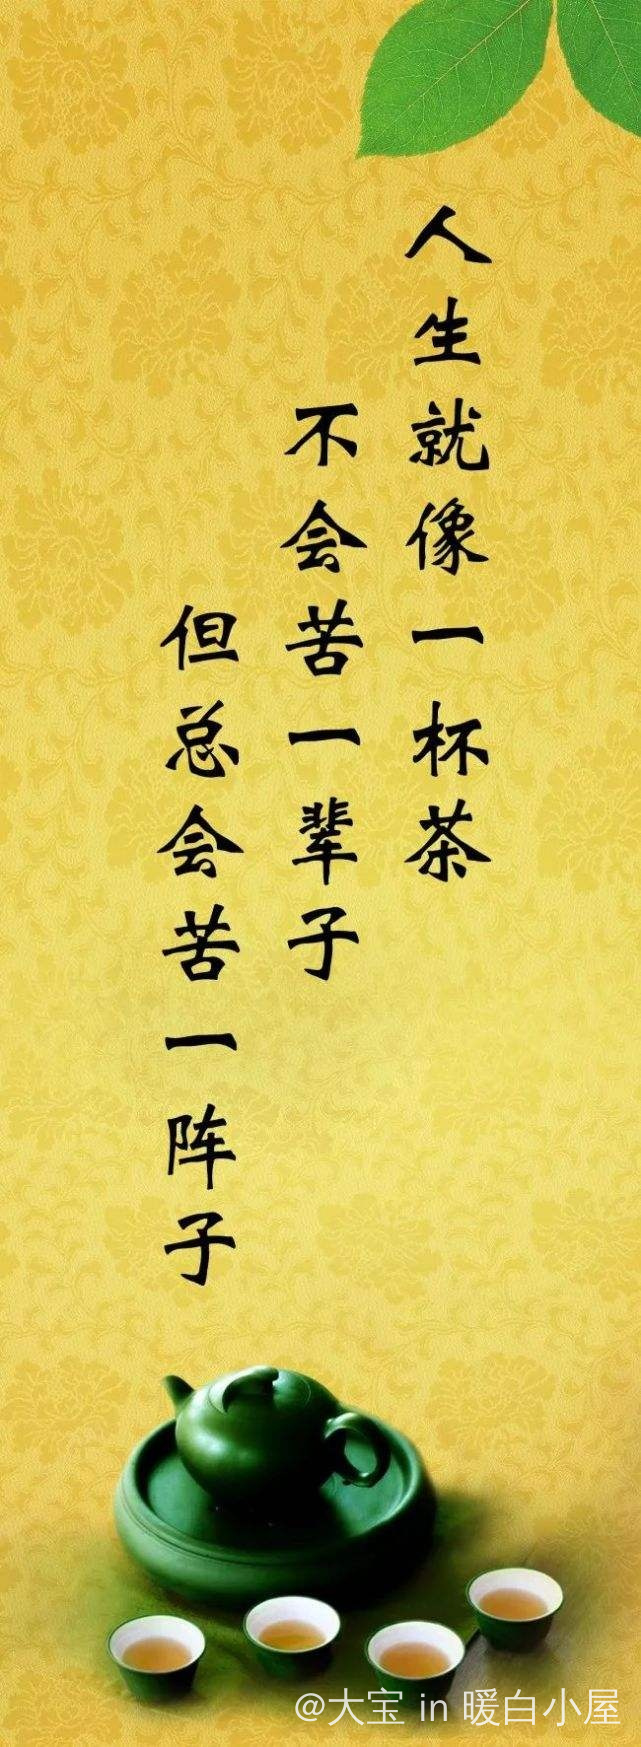 人生就像一杯茶
不会苦一辈子
但总会苦一阵子
@大宝 in 暖白小屋